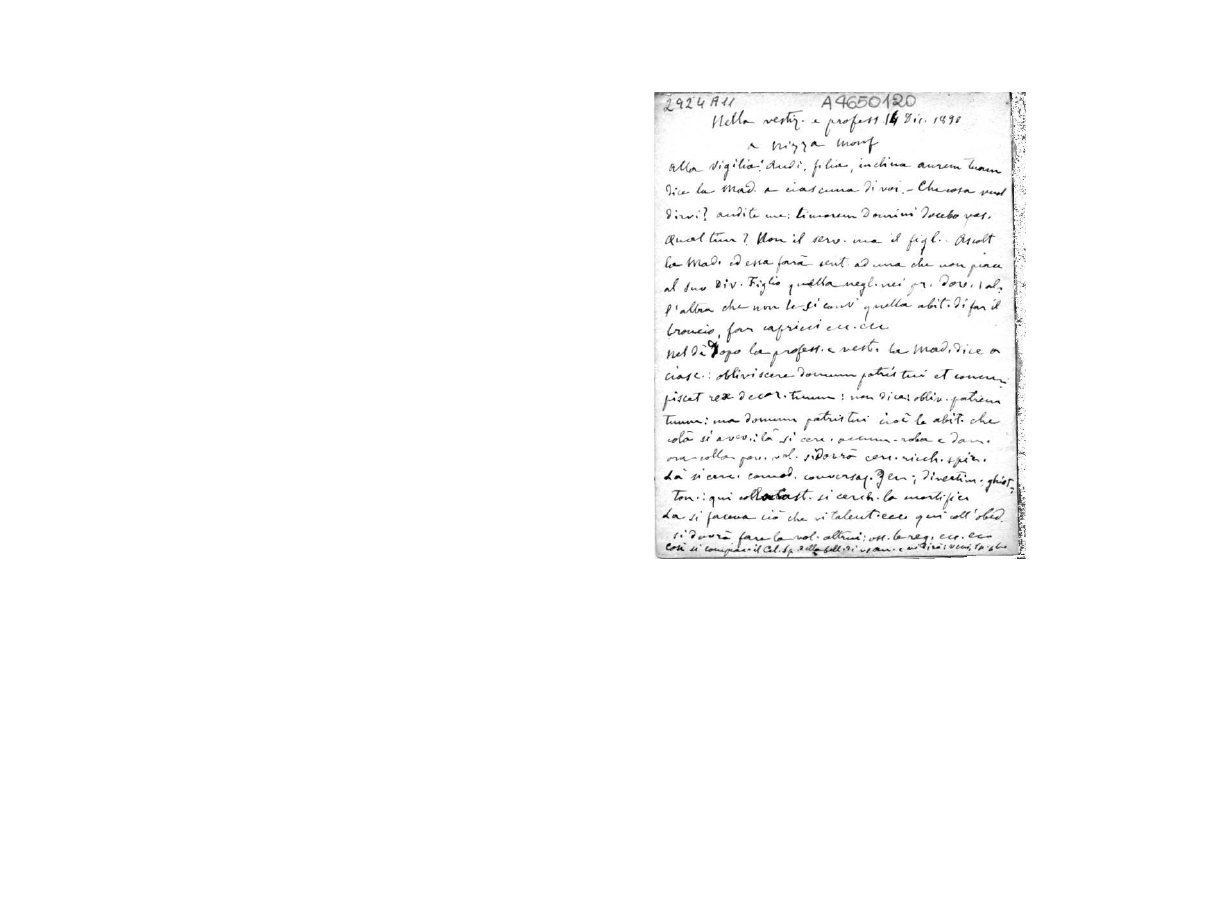 2924 A11 A4650120
Nella vestiz. e profess. 14 Dic. 1890
a Nizza Monf
Alla vigilia: Audi, filia, inclina aurem tuam
dice la Mad. a ciascuna di voi. - Che cosa vuol
dirvi? audite me: timorem Domini docebo vos.
Qual tim? Non il serv. ma il figl. Ascolt
la Mad. ed essa farà sent. ad una che non piace
al suo Div. Figlio quella negl. nei pr. dov. : al-
l'altra che non le si conv. quella abit. di far il
broncio, far capricci ecc. ecc
Nel dì dopo la profess. e vest. la Mad. dice a
ciasc.: obliviscere domum patris tui et concu-
piscet rex decor. tuum: non dice: obliv. patrem
tuum: ma domum patris tui cioè le abit. che
colà si avev.: là si cerc. accum. roba e dan.
ora colla pov. vol. si dovrà cerc. ricch. spir.
Là si cerc. comod. conversaz. gen; divertim. ghiot-
ton.: qui colla cast. si cerch. la mortific
Là si faceva ciò che vi talent. ecc qui coll'obbed.
si dovrà fare la vol. altrui: oss. le reg. ecc. ecc
Così si compiac. il Cel. Sp. della bell. di